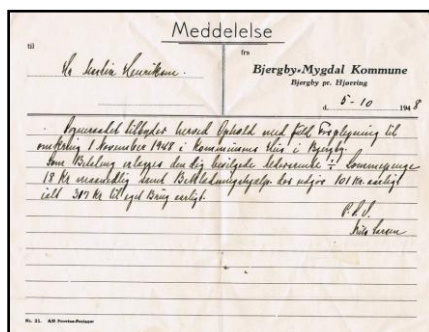 Meddelelse
til
fra
Hr Martin Henriksen.
Bjergby-Mygdal Kommune
Bjergby pr. Hjørring
d. 5-10 1948
Sogneraadet tilbyder herved Ophold med fuld Forplejning til
omkring 1 November 1948 i Kommunens Hus i Bjergby.
Som Betaling erlægges den dig bevilgede Aldersrente ÷ Lommepenge
18 Kr maanedlig samt Beklædningshjælp der udgør 101 Kr aarligt
ialt 317 Kr til eget Brug aarligt.
P. S. V.
Larsen
Nr. 21.